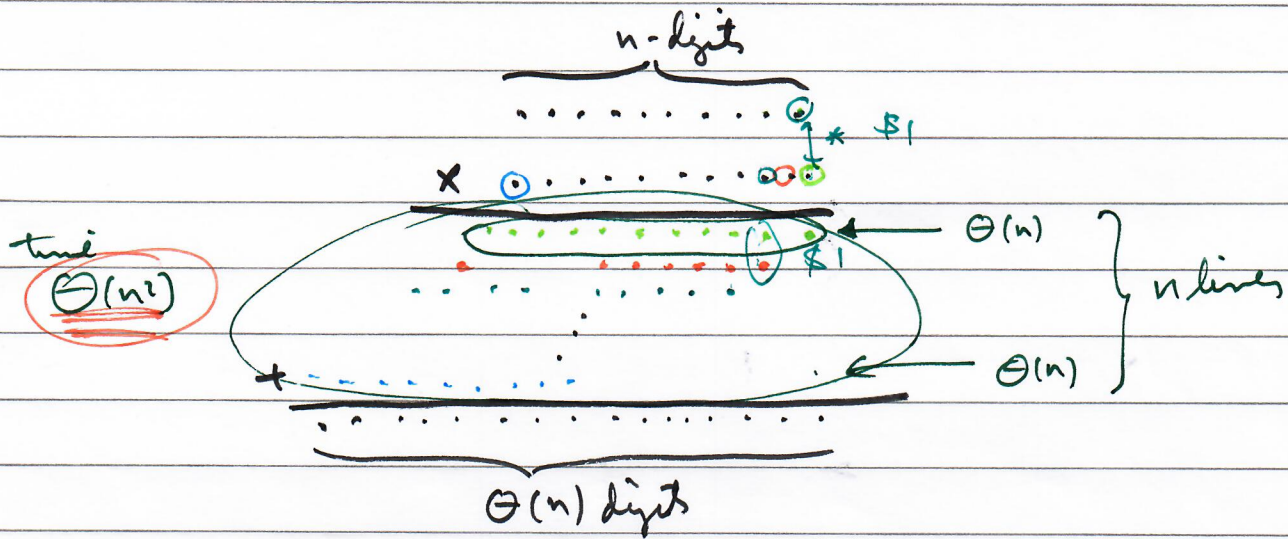 n-digits
* $1
×
Θ(n)
$1
time
Θ(n²)
n lines
+
Θ(n)
Θ(n) digits